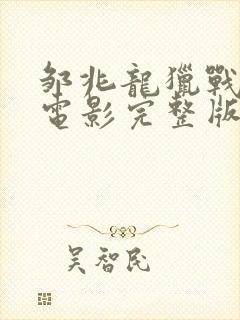 邹兆龍獵戰
電影完整版
吴智民